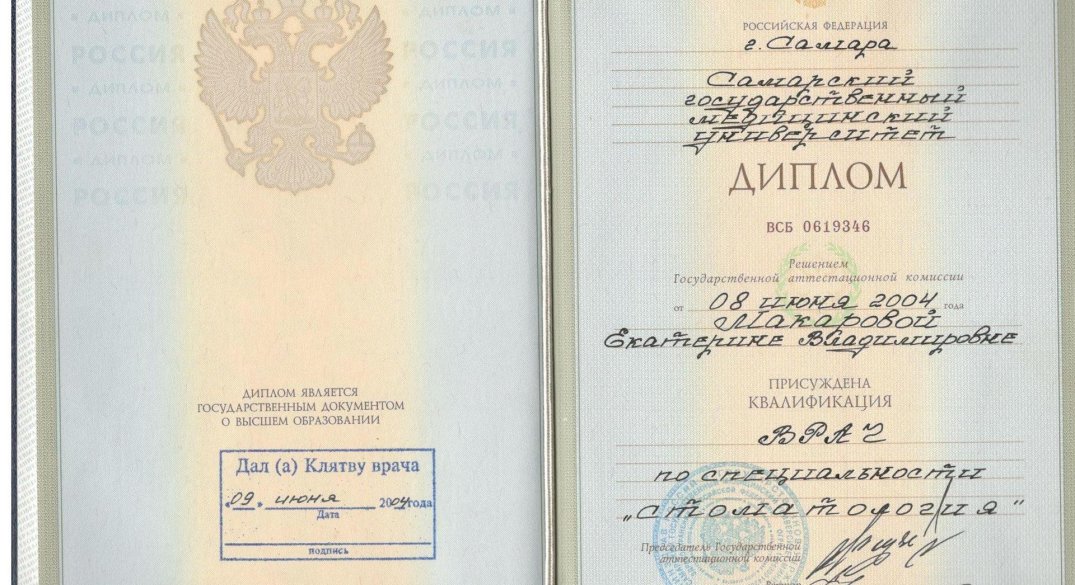 « ДИПЛОМ » « ДИПЛОМ »
РОССИЯ РОССИЯ
« ДИПЛОМ » « ДИПЛОМ »
РОССИЯ РОССИЯ
« ДИПЛОМ » « ДИПЛОМ »
РОССИЯ РОССИЯ
ДИПЛОМ ЯВЛЯЕТСЯ
ГОСУДАРСТВЕННЫМ ДОКУМЕНТОМ
О ВЫСШЕМ ОБРАЗОВАНИИ
Дал (а) Клятву врача
„09„ июня 2004года
Дата
подпись
РОССИЙСКАЯ ФЕДЕРАЦИЯ
г. Самара
Самарский
государственный
медицинский
университет
ДИПЛОМ
ВСБ 0619346
Решением
Государственной аттестационной комиссии
от 08 июня 2004 года
Макаровой
Екатерине Владимировне
ПРИСУЖДЕНА
КВАЛИФИКАЦИЯ
ВРАЧ
по специальности
„Стоматология"
Председатель Государственной
аттестационной комиссии